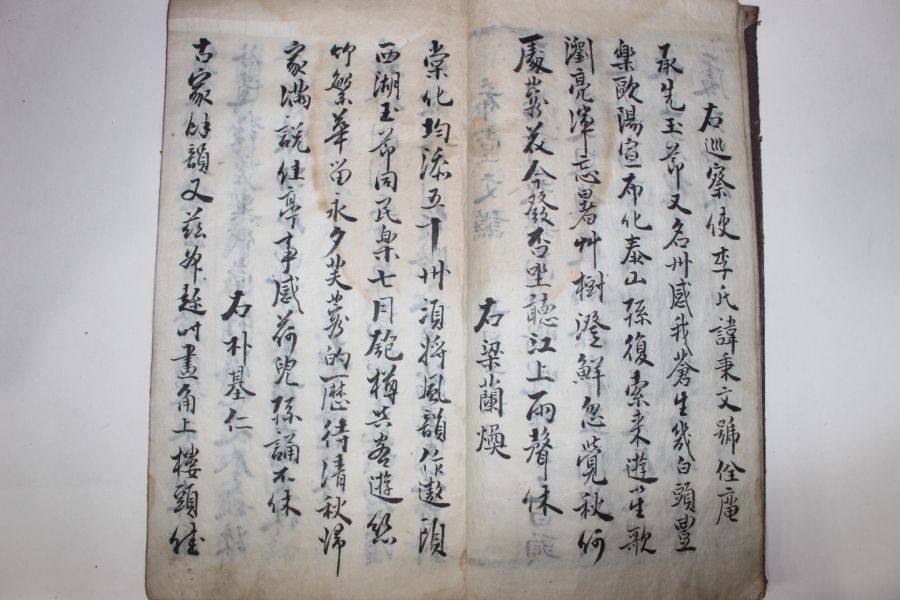 右巡察使李氏諱秉文號佺广
承先玉節又名州感我蒼生幾白頭豊
樂歐陽宣布化泰山孫復索来遊笙歌
瀏亮渾忘暑艸樹澄鮮忽覺秋何
處芰荷今發否坐聽江上雨聲休
右梁蘭煥
棠化均添五十州須將風韻作遨頭
西湖玉節同民樂七月匏樽共客遊絲
竹繁華留永夕芙蓉的歷待清秋歸
家滿說佳亭事感荷兒孫誦不休
右朴基仁
古家餘韻又茲州畫角上樓頭佳